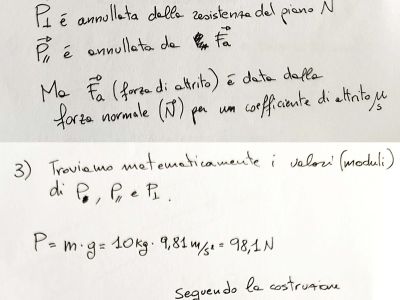 P⊥ é annullata dalla resistenza del piano N
P⃗∥ é annullata da F⃗a
Ma F⃗a (forza di attrito) é data dalla
forza normale (N⃗) per un coefficiente di attrito μs
3) Troviamo matematicamente i valori (moduli)
di P, P∥ e P⊥.
P = m·g = 10 kg · 9,81 m/s² = 98,1 N
Seguendo la costruzione